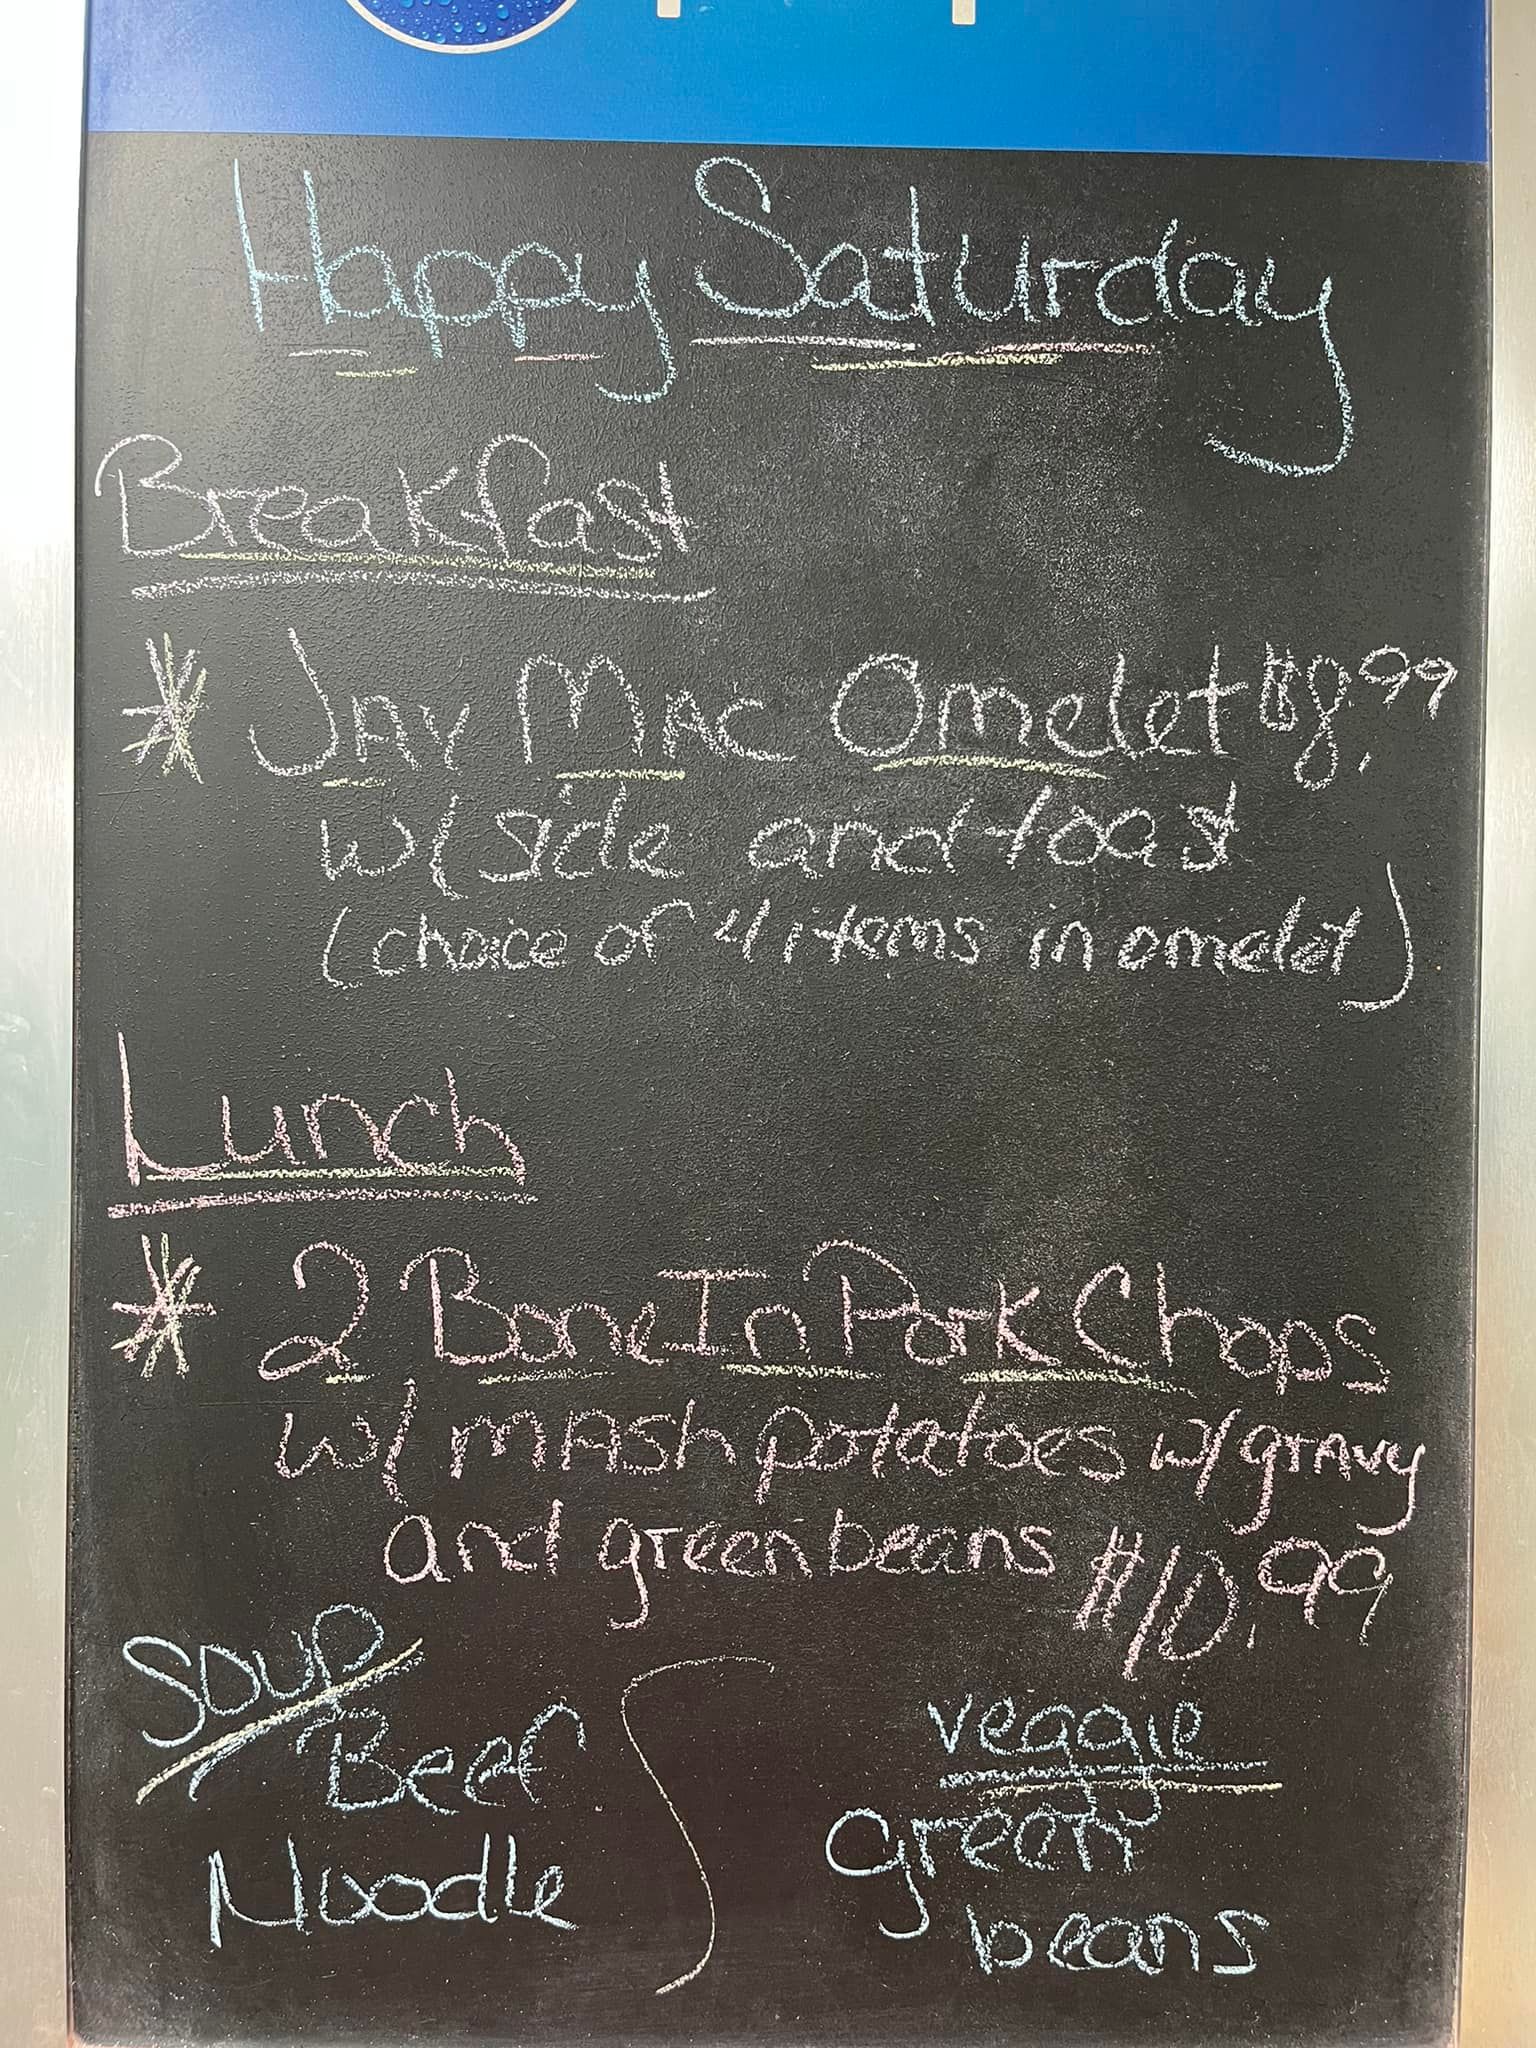 Happy Saturday
Breakfast
* JAY MAC Omelet $8.99
w/ side and toast
(choice of 4 items in omelet)
Lunch
* 2 Bone In Pork Chops
w/ mAsh potatoes w/ grAvy
and green beans $10.99
SOUP
Beef
Noodle
veggie
green
beans